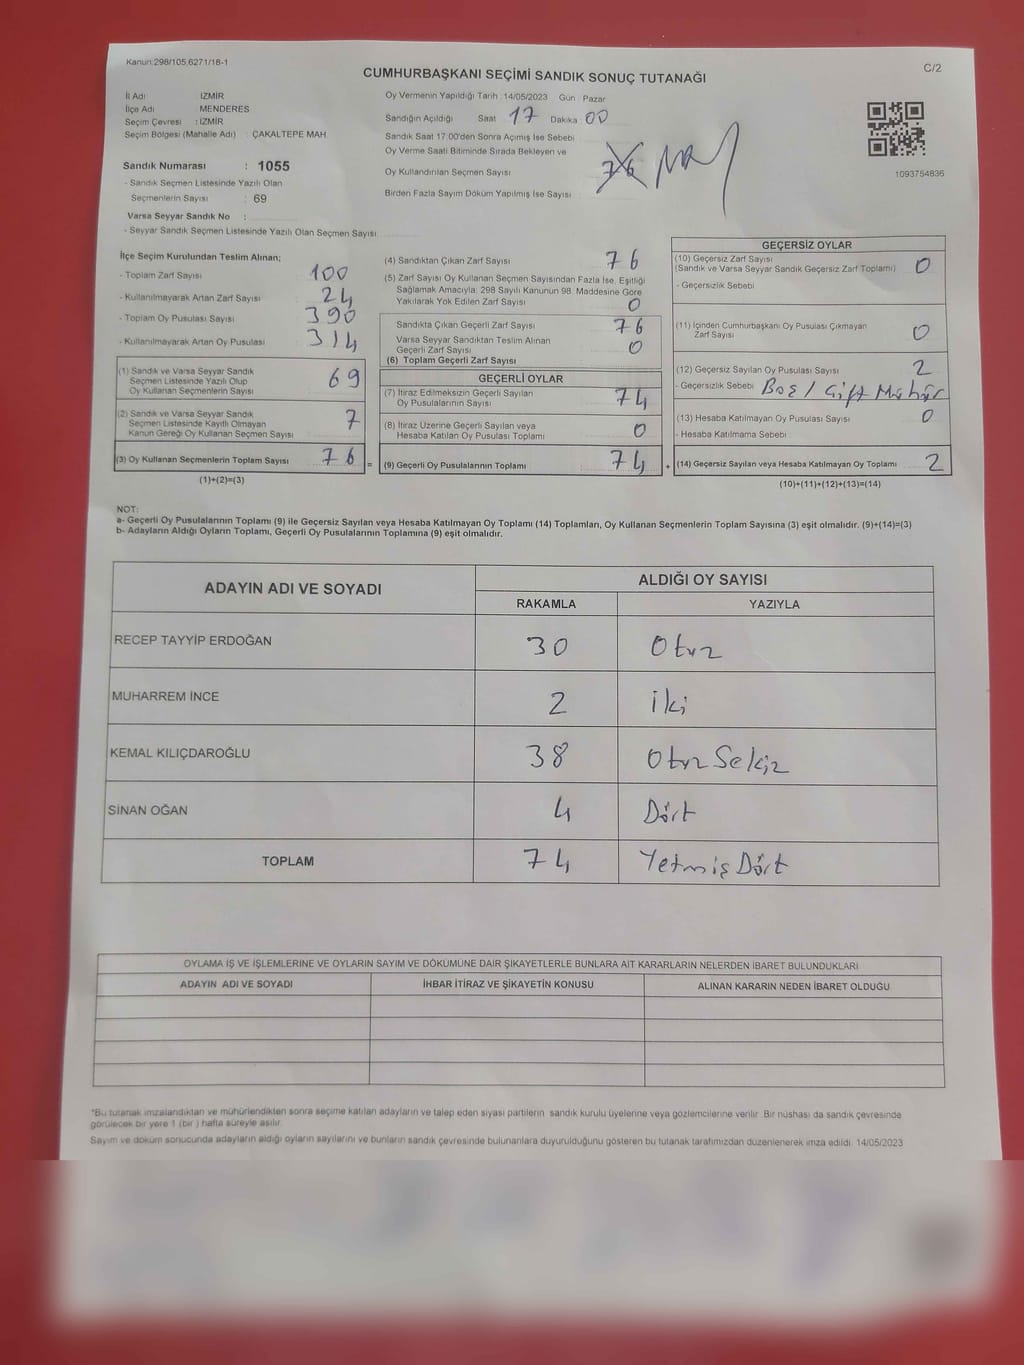 Kanun:298/105,6271/18-1
CUMHURBAŞKANI SEÇİMİ SANDIK SONUÇ TUTANAĞI
C/2
İl Adı İZMİR
İlçe Adı MENDERES
Seçim Çevresi : İZMİR
Seçim Bölgesi (Mahalle Adı) : ÇAKALTEPE MAH.
Oy Vermenin Yapıldığı Tarih : 14/05/2023 Gün : Pazar
Sandığın Açıldığı Saat 17 Dakika 00
Sandık Saat 17:00'den Sonra Açımış İse Sebebi
Oy Verme Saati Bitiminde Sırada Bekleyen ve
Oy Kullandırılan Seçmen Sayısı 76
Birden Fazla Sayım Döküm Yapılmış İse Sayısı
1093754836
Sandık Numarası : 1055
- Sandık Seçmen Listesinde Yazılı Olan
Seçmenlerin Sayısı : 69
Varsa Seyyar Sandık No :
- Seyyar Sandık Seçmen Listesinde Yazılı Olan Seçmen Sayısı
İlçe Seçim Kurulundan Teslim Alınan;
- Toplam Zarf Sayısı 100
- Kullanılmayarak Artan Zarf Sayısı 24
- Toplam Oy Pusulası Sayısı 390
- Kullanılmayarak Artan Oy Pusulası 314
(1) Sandık ve Varsa Seyyar Sandık
Seçmen Listesinde Yazılı Olup
Oy Kullanan Seçmenlerin Sayısı 69
(2) Sandık ve Varsa Seyyar Sandık
Seçmen Listesinde Kayıtlı Olmayan
Kanun Gereği Oy Kullanan Seçmen Sayısı 7
(3) Oy Kullanan Seçmenlerin Toplam Sayısı 76 =
(1)+(2)=(3)
(4) Sandıktan Çıkan Zarf Sayısı 76
(5) Zarf Sayısı Oy Kullanan Seçmen Sayısından Fazla İse, Eşitliği
Sağlamak Amacıyla, 298 Sayılı Kanunun 98. Maddesine Göre
Yakılarak Yok Edilen Zarf Sayısı 0
Sandıkta Çıkan Geçerli Zarf Sayısı 76
Varsa Seyyar Sandıktan Teslim Alınan
Geçerli Zarf Sayısı 0
(6) Toplam Geçerli Zarf Sayısı
GEÇERLİ OYLAR
(7) İtiraz Edilmeksizin Geçerli Sayılan
Oy Pusulalarının Sayısı 74
(8) İtiraz Üzerine Geçerli Sayılan veya
Hesaba Katılan Oy Pusulası Toplamı 0
(9) Geçerli Oy Pusulalarının Toplamı 74 +
GEÇERSİZ OYLAR
(10) Geçersiz Zarf Sayısı
(Sandık ve Varsa Seyyar Sandık Geçersiz Zarf Toplamı) 0
- Geçersizlik Sebebi
(11) İçinden Cumhurbaşkanı Oy Pusulası Çıkmayan
Zarf Sayısı 0
(12) Geçersiz Sayılan Oy Pusulası Sayısı 2
- Geçersizlik Sebebi Boş / Çift Mühür
(13) Hesaba Katılmayan Oy Pusulası Sayısı 0
- Hesaba Katılmama Sebebi
(14) Geçersiz Sayılan veya Hesaba Katılmayan Oy Toplamı 2
(10)+(11)+(12)+(13)=(14)
NOT:
a- Geçerli Oy Pusulalarının Toplamı (9) ile Geçersiz Sayılan veya Hesaba Katılmayan Oy Toplamı (14) Toplamları, Oy Kullanan Seçmenlerin Toplam Sayısına (3) eşit olmalıdır. (9)+(14)=(3)
b- Adayların Aldığı Oyların Toplamı, Geçerli Oy Pusulalarının Toplamına (9) eşit olmalıdır.
ADAYIN ADI VE SOYADI ALDIĞI OY SAYISI
RAKAMLA YAZIYLA
RECEP TAYYİP ERDOĞAN 30 Otuz
MUHARREM İNCE 2 İki
KEMAL KILIÇDAROĞLU 38 Otuz Sekiz
SİNAN OĞAN 4 Dört
TOPLAM 74 Yetmiş Dört
OYLAMA İŞ VE İŞLEMLERİNE VE OYLARIN SAYIM VE DÖKÜMÜNE DAİR ŞİKAYETLERLE BUNLARA AİT KARARLARIN NELERDEN İBARET BULUNDUKLARI
ADAYIN ADI VE SOYADI İHBAR İTİRAZ VE ŞİKAYETİN KONUSU ALINAN KARARIN NEDEN İBARET OLDUĞU
*Bu tutanak imzalandıktan ve mühürlendikten sonra seçime katılan adayların ve talep eden siyasi partilerin sandık kurulu üyelerine veya gözlemcilerine verilir. Bir nüshası da sandık çevresinde
görülecek bir yere 1 (bir ) hafta süreyle asılır.
Sayım ve döküm sonucunda adayların aldığı oyların sayılarını ve bunların sandık çevresinde bulunanlara duyurulduğunu gösteren bu tutanak tarafımızdan düzenlenerek imza edildi. 14/05/2023